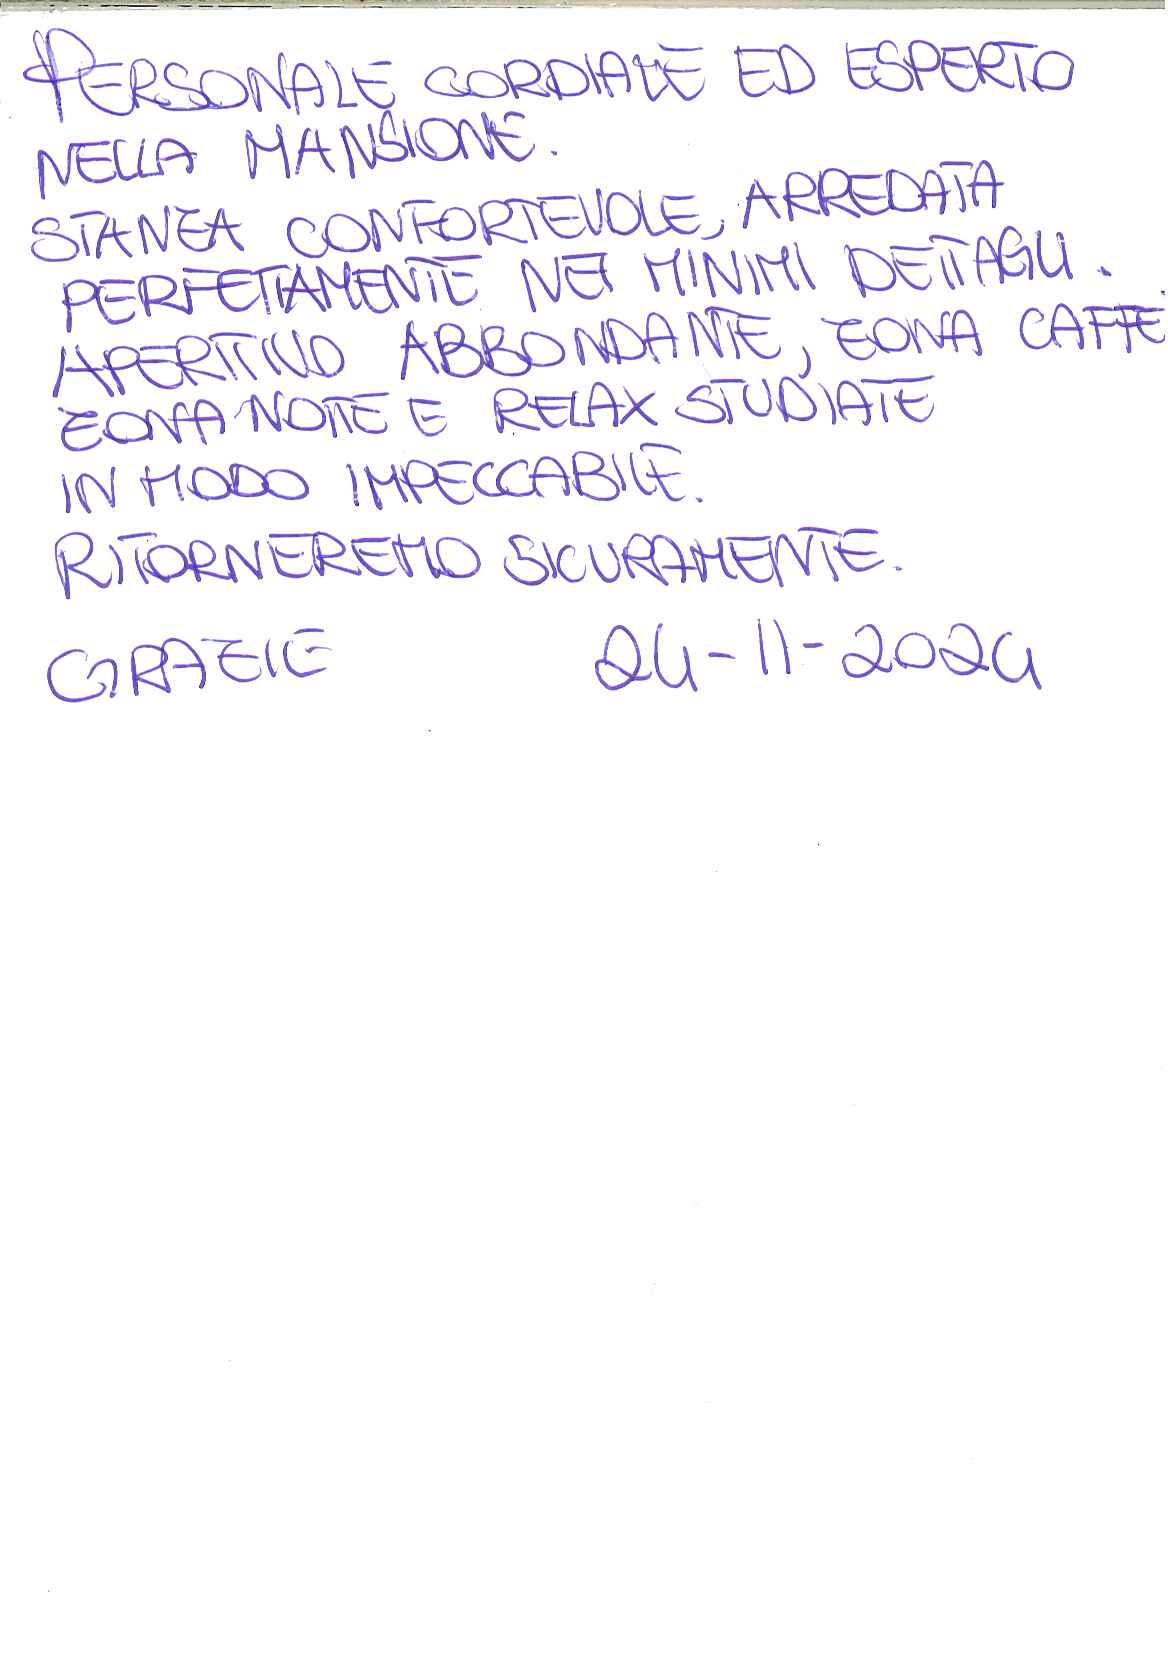 PERSONALE CORDIALE ED ESPERTO
NELLA MANSIONE.
STANZA CONFORTEVOLE, ARREDATA
PERFETTAMENTE NEI MINIMI DETTAGLI.
APERITIVO ABBONDANTE, ZONA CAFFE
ZONA NOTTE E RELAX STUDIATE
IN MODO IMPECCABILE.
RITORNEREMO SICURAMENTE.
GRAZIE 24-11-2024